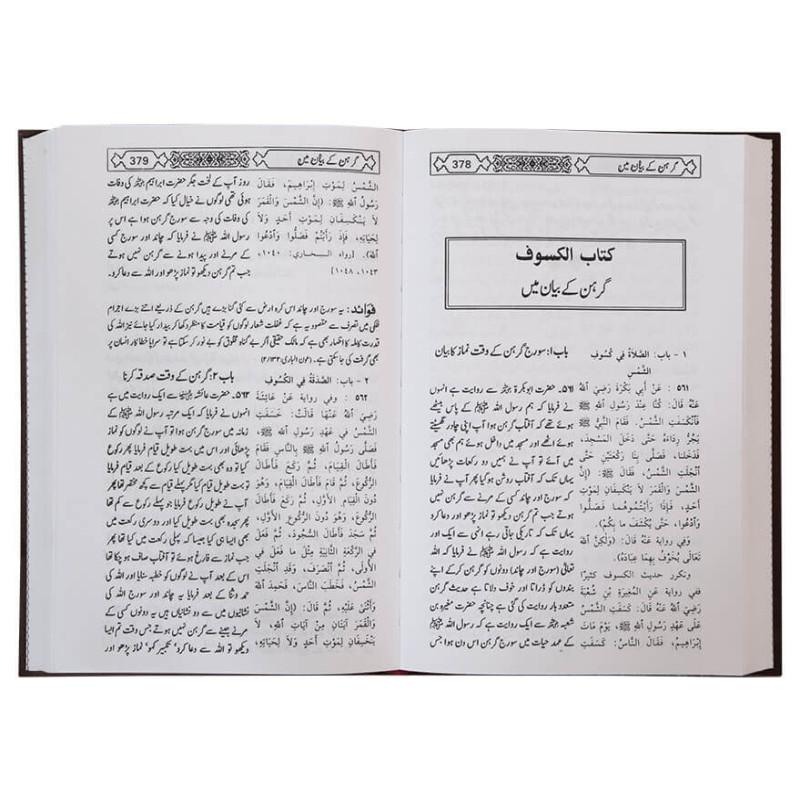 گرہن کے بیان میں
378
کتاب الکسوف
گرہن کے بیان میں
۱ - باب: الصَّلاَةُ فِي كُسُوفِ
الشَّمْسِ
٥٦١ : عَنْ أَبِي بَكْرَةَ رَضِيَ اللهُ
عَنْهُ قَالَ: كُنَّا عِنْدَ رَسُولِ اللهِ ﷺ
فَانْكَسَفَتِ الشَّمْسُ، فَقَامَ النَّبِيُّ ﷺ
يَجُرُّ رِدَاءَهُ حَتَّى دَخَلَ المَسْجِدَ،
فَدَخَلْنَا، فَصَلَّى بِنَا رَكْعَتَيْنِ حَتَّى
انْجَلَتِ الشَّمْسُ، فَقَالَ ﷺ: (إِنَّ
الشَّمْسَ وَالْقَمَرَ لاَ يَنْكَسِفَانِ لِمَوْتِ
أَحَدٍ، فَإِذَا رَأَيْتُمُوهُمَا فَصَلُّوا
وَادْعُوا، حَتَّى يُكْشَفَ مَا بِكُمْ).
وَفِي رِوايةٍ عَنْهُ قَالَ: (وَلٰكِنَّ اللهَ
تَعَالَى يُخَوِّفُ بِهِمَا عِبَادَهُ).
وتكرر حديث الكسوف كثيرًا
ففي رواية عَنِ المُغِيرَةِ بْنِ شُعْبَةَ
رَضِيَ اللهُ عَنْهُ قَالَ: كَسَفَتِ الشَّمْسُ
عَلَى عَهْدِ رَسُولِ اللهِ ﷺ، يَوْمَ مَاتَ
إِبْرَاهِيمُ، فَقَالَ النَّاسُ: كَسَفَتِ
باب ۱: سورج گرہن کے وقت نماز کا بیان
۵۶۱۔ حضرت ابوبکرۃ رضی اللہ عنہ سے روایت ہے انہوں
نے فرمایا کہ ہم رسول اللہ ﷺ کے پاس بیٹھے
ہوئے تھے کہ آفتاب گرہن ہوا آپ اپنی چادر گھسیٹتے
ہوئے اٹھے اور مسجد میں داخل ہوئے ہم بھی مسجد
میں آئے تو آپ نے ہمیں دو رکعات پڑھائیں
یہاں تک کہ آفتاب روشن ہو گیا پھر آپ نے فرمایا
کہ سورج اور چاند کسی کے مرنے سے گرہن نہیں
ہوتے جب تم گرہن دیکھو تو نماز پڑھو اور دعا کرو
یہاں تک کہ تاریکی جاتی رہے انہی سے ایک اور
روایت ہے کہ رسول اللہ ﷺ نے فرمایا کہ اللہ
تعالیٰ (سورج اور چاند) دونوں کو گرہن کر کے اپنے
بندوں کو ڈراتا اور خوف دلاتا ہے حدیث گرہن
متعدد بار روایت کی گئی ہے چنانچہ حضرت مغیرہ بن
شعبہ رضی اللہ عنہ سے ایک روایت ہے کہ رسول اللہ ﷺ
کے عہد حیات میں سورج گرہن اس دن ہوا جس
گرہن کے بیان میں
379
الشَّمْسُ لِمَوْتِ إِبْرَاهِيمَ، فَقَالَ
رَسُولُ اللهِ ﷺ: (إِنَّ الشَّمْسَ وَالْقَمَرَ
لاَ يَنْكَسِفَانِ لِمَوْتِ أَحَدٍ وَلاَ
لِحَيَاتِهِ، فَإِذَا رَأَيْتُمْ فَصَلُّوا وَادْعُوا
اللهَ). [رواه البخاري: ١٠٤٠،
١٠٤٣، ١٠٤٨]
روز آپ کے لخت جگر حضرت ابراہیم رضی اللہ عنہ کی وفات
ہوئی تھی لوگوں نے خیال کیا کہ حضرت ابراہیم رضی اللہ عنہ
کی وفات کی وجہ سے سورج گرہن ہوا ہے اس پر
رسول اللہ ﷺ نے فرمایا کہ چاند اور سورج کسی
کے مرنے اور پیدا ہونے سے گرہن نہیں ہوتے
جب تم گرہن دیکھو تو نماز پڑھو اور اللہ سے دعا کرو۔
فوائد: یہ سورج اور چاند اس کرہ ارض سے کئی گنا بڑے ہیں گرہن کے ذریعے اتنے بڑے اجرام
فلکی میں تصرف سے مقصود یہ ہے کہ غفلت شعار لوگوں کو قیامت کا منظر دکھا کر بیدار کیا جائے نیز اللہ کی
قدرت کاملہ کا اظہار بھی ہے کہ مالک حقیقی اگر بے گناہ مخلوق کو بے نور کر سکتا ہے تو سراپا خطا کار انسان پر
بھی گرفت کی جا سکتی ہے۔ (عون الباری:۲/۱۳۲)
٢ - باب: الصَّدَقَةُ فِي الكُسُوفِ
٥٦٢ : وَفِي رِواية عَنْ عَائِشَةَ
رَضِيَ اللهُ عَنْهَا قَالَتْ: خَسَفَتِ
الشَّمْسُ فِي عَهْدِ رَسُولِ اللهِ ﷺ،
فَصَلَّى رَسُولُ اللهِ ﷺ بِالنَّاسِ فَقَامَ
فَأَطَالَ القِيَامَ، ثُمَّ رَكَعَ فَأَطَالَ
الرُّكُوعَ، ثُمَّ قَامَ فَأَطَالَ القِيَامَ، وَهُوَ
دُونَ القِيَامِ الأَوَّلِ، ثُمَّ رَكَعَ فَأَطَالَ
الرُّكُوعَ، وَهُوَ دُونَ الرُّكُوعِ الأَوَّلِ،
ثُمَّ سَجَدَ فَأَطَالَ السُّجُودَ، ثُمَّ فَعَلَ
فِي الرَّكْعَةِ الثَّانِيَةِ مِثْلَ مَا فَعَلَ فِي
الأُولَى، ثُمَّ انْصَرَفَ، وَقَدِ انْجَلَتِ
الشَّمْسُ، فَخَطَبَ النَّاسَ، فَحَمِدَ اللهَ
وَأَثْنَى عَلَيْهِ، ثُمَّ قَالَ: (إِنَّ الشَّمْسَ
وَالْقَمَرَ آيَتَانِ مِنْ آيَاتِ اللهِ، لاَ
يَنْخَسِفَانِ لِمَوْتِ أَحَدٍ وَلاَ لِحَيَاتِهِ،
باب ۲: گرہن کے وقت صدقہ کرنا
۵۶۲۔ حضرت عائشہ رضی اللہ عنہا سے روایت ہے
انہوں نے فرمایا کہ ایک مرتبہ رسول اللہ ﷺ کے
زمانہ میں سورج گرہن ہوا تو آپ نے لوگوں کو نماز
پڑھائی اور اس میں بہت طویل قیام فرمایا پھر رکوع
کیا تو وہ بھی بہت طویل کیا رکوع کے بعد قیام فرمایا
تو بہت طویل قیام کیا مگر پہلے قیام سے کچھ مختصر تھا پھر
آپ نے طویل رکوع فرمایا جو پہلے رکوع سے کم تھا
پھر سجدہ بھی بہت طویل کیا اور دوسری رکعت میں
بھی ایسا ہی کیا جیسا کہ پہلی رکعت میں کیا تھا پھر
جب نماز سے فارغ ہوئے تو آفتاب صاف ہو چکا تھا
اس کے بعد آپ نے لوگوں کو خطبہ سنایا اور اللہ کی
حمد و ثنا کے بعد فرمایا یہ چاند اور سورج اللہ کی
نشانیوں میں سے دو نشانیاں ہیں یہ دونوں کسی کے
مرنے جینے سے گرہن نہیں ہوتے جس وقت تم ایسا
دیکھو تو اللہ سے دعا کرو' تکبیر کہو' نماز پڑھو اور